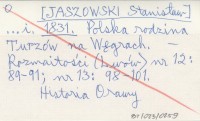 [JASZOWSKI Stanisław]
...i. 1831. Polska rodzina
Turzów na Węgrach. —
Rozmaitości (Lwów) nr 12:
89-91; nr 13: 98-101.
Historia Orawy